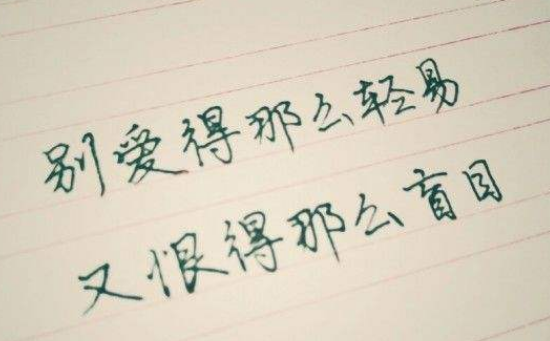 别爱得那么轻易
又恨得那么盲目